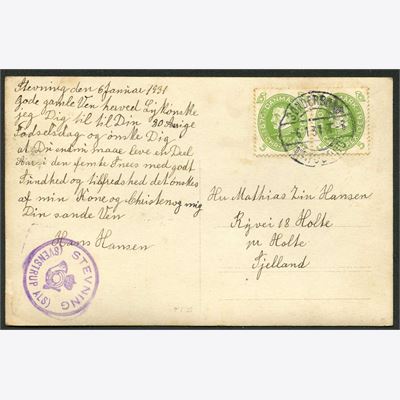 Stevning den 6 Januar 1931
Gode gamle Ven herved Lykønske
jeg Dig til til Din 30 Aarige
Fødselsdag og ønske Dig
at Du endnu maae leve en Deel
Aar i den femke med godt
Sundhed og tilfredshed det ønskes
af min Kone og og mig
Din sande Ven
Hans Hansen
STEVNING
(SVENSTRUP ALS)
DANMARK
5
5
SØNDERBORG
6.1.31
Hr Mathias Hansen
18 Holte
pr Holte
Sjelland